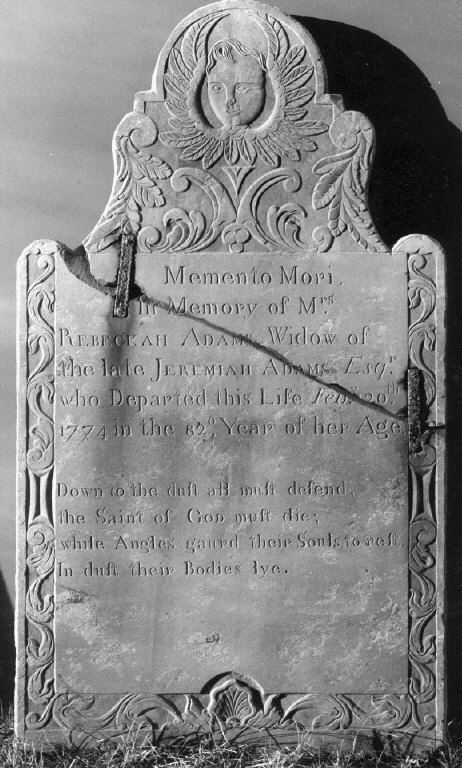 Memento Mori.
In Memory of Mrs
Rebeckah Adams Widow of
the late Jeremiah Adams Esqr
who Departed this Life Febry 20th
1774 in the 82d Year of her Age.
Down to the duſt all muſt deſend,
the Saint of God muſt die;
while Angles gaurd their Souls to reſt,
In duſt their Bodies lye.